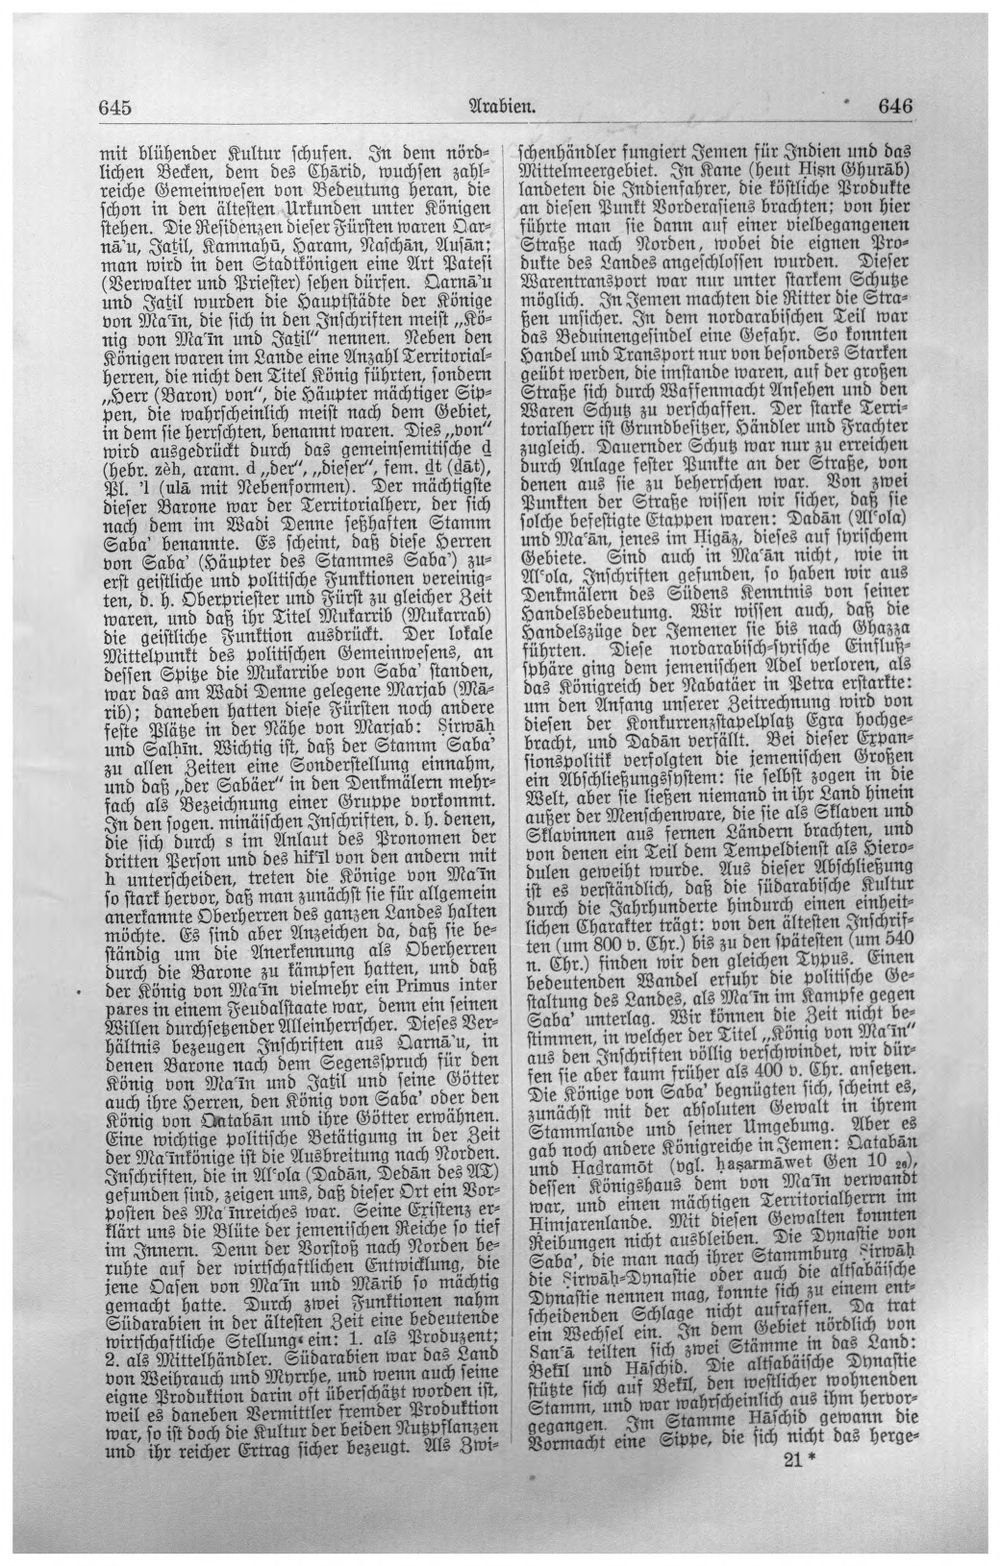 645
Arabien.
646
mit blühender Kultur schufen. In dem nörd-
lichen Becken, dem des Chārid, wuchsen zahl-
reiche Gemeinwesen von Bedeutung heran, die
schon in den ältesten Urkunden unter Königen
stehen. Die Residenzen dieser Fürsten waren Qar-
nā’u, Jaṯil, Kamnahū, Haram, Naschān, Ausān;
man wird in den Stadtkönigen eine Art Patesi
(Verwalter und Priester) sehen dürfen. Qarnā’u
und Jaṯil wurden die Hauptstädte der Könige
von Ma‘īn, die sich in den Inschriften meist „Kö-
nig von Ma‘īn und Jaṯil“ nennen. Neben den
Königen waren im Lande eine Anzahl Territorial-
herren, die nicht den Titel König führten, sondern
„Herr (Baron) von“, die Häupter mächtiger Sip-
pen, die wahrscheinlich meist nach dem Gebiet,
in dem sie herrschten, benannt waren. Dies „von“
wird ausgedrückt durch das gemeinsemitische ḏ
(hebr. zèh, aram. d „der“, „dieser“, fem. ḏt (ḏāt),
Pl. ’l (ulā mit Nebenformen). Der mächtigste
dieser Barone war der Territorialherr, der sich
nach dem im Wadi Denne seßhaften Stamm
Saba’ benannte. Es scheint, daß diese Herren
von Saba’ (Häupter des Stammes Saba’) zu-
erst geistliche und politische Funktionen vereinig-
ten, d. h. Oberpriester und Fürst zu gleicher Zeit
waren, und daß ihr Titel Mukarrib (Mukarrab)
die geistliche Funktion ausdrückt. Der lokale
Mittelpunkt des politischen Gemeinwesens, an
dessen Spitze die Mukarribe von Saba’ standen,
war das am Wadi Denne gelegene Marjab (Mā-
rib); daneben hatten diese Fürsten noch andere
feste Plätze in der Nähe von Marjab: Ṣirwāḥ
und Salḥīn. Wichtig ist, daß der Stamm Saba’
zu allen Zeiten eine Sonderstellung einnahm,
und daß „der Sabäer“ in den Denkmälern mehr-
fach als Bezeichnung einer Gruppe vorkommt.
In den sogen. minäischen Inschriften, d. h. denen,
die sich durch s im Anlaut des Pronomen der
dritten Person und des hif‘īl von den andern mit
h unterscheiden, treten die Könige von Ma‘īn
so stark hervor, daß man zunächst sie für allgemein
anerkannte Oberherren des ganzen Landes halten
möchte. Es sind aber Anzeichen da, daß sie be-
ständig um die Anerkennung als Oberherren
durch die Barone zu kämpfen hatten, und daß
der König von Ma‘īn vielmehr ein Primus inter
pares in einem Feudalstaate war, denn ein seinen
Willen durchsetzender Alleinherrscher. Dieses Ver-
hältnis bezeugen Inschriften aus Qarnā’u, in
denen Barone nach dem Segensspruch für den
König von Ma‘īn und Jaṯil und seine Götter
auch ihre Herren, den König von Saba’ oder den
König von Qatabān und ihre Götter erwähnen.
Eine wichtige politische Betätigung in der Zeit
der Ma‘īnkönige ist die Ausbreitung nach Norden.
Inschriften, die in Al‘ola (Dadān, Dedān des AT)
gefunden sind, zeigen uns, daß dieser Ort ein Vor-
posten des Ma‘īnreiches war. Seine Existenz er-
klärt uns die Blüte der jemenischen Reiche so tief
im Innern. Denn der Vorstoß nach Norden be-
ruhte auf der wirtschaftlichen Entwicklung, die
jene Oasen von Ma‘īn und Mārib so mächtig
gemacht hatte. Durch zwei Funktionen nahm
Südarabien in der ältesten Zeit eine bedeutende
wirtschaftliche Stellung ein: 1. als Produzent;
2. als Mittelhändler. Südarabien war das Land
von Weihrauch und Myrrhe, und wenn auch seine
eigne Produktion darin oft überschätzt worden ist,
weil es daneben Vermittler fremder Produktion
war, so ist doch die Kultur der beiden Nutzpflanzen
und ihr reicher Ertrag sicher bezeugt. Als Zwi-
schenhändler fungiert Jemen für Indien und das
Mittelmeergebiet. In Kane (heut Hiṣn Ghurāb)
landeten die Indienfahrer, die köstliche Produkte
an diesen Punkt Vorderasiens brachten; von hier
führte man sie dann auf einer vielbegangenen
Straße nach Norden, wobei die eignen Pro-
dukte des Landes angeschlossen wurden. Dieser
Warentransport war nur unter starkem Schutze
möglich. In Jemen machten die Ritter die Stra-
ßen unsicher. In dem nordarabischen Teil war
das Beduinengesindel eine Gefahr. So konnten
Handel und Transport nur von besonders Starken
geübt werden, die imstande waren, auf der großen
Straße sich durch Waffenmacht Ansehen und den
Waren Schutz zu verschaffen. Der starke Terri-
torialherr ist Grundbesitzer, Händler und Frachter
zugleich. Dauernder Schutz war nur zu erreichen
durch Anlage fester Punkte an der Straße, von
denen aus sie zu beherrschen war. Von zwei
Punkten der Straße wissen wir sicher, daß sie
solche befestigte Etappen waren: Dadān (Al‘ola)
und Ma‘ān, jenes im Higāz, dieses auf syrischem
Gebiete. Sind auch in Ma‘ān nicht, wie in
Al‘ola, Inschriften gefunden, so haben wir aus
Denkmälern des Südens Kenntnis von seiner
Handelsbedeutung. Wir wissen auch, daß die
Handelszüge der Jemener sie bis nach Ghazza
führten. Diese nordarabisch-syrische Einfluß-
sphäre ging dem jemenischen Adel verloren, als
das Königreich der Nabatäer in Petra erstarkte:
um den Anfang unserer Zeitrechnung wird von
diesen der Konkurrenzstapelplatz Egra hochge-
bracht, und Dadān verfällt. Bei dieser Expan-
sionspolitik verfolgten die jemenischen Großen
ein Abschließungssystem: sie selbst zogen in die
Welt, aber sie ließen niemand in ihr Land hinein
außer der Menschenware, die sie als Sklaven und
Sklavinnen aus fernen Ländern brachten, und
von denen ein Teil dem Tempeldienst als Hiero-
dulen geweiht wurde. Aus dieser Abschließung
ist es verständlich, daß die südarabische Kultur
durch die Jahrhunderte hindurch einen einheit-
lichen Charakter trägt: von den ältesten Inschrif-
ten (um 800 v. Chr.) bis zu den spätesten (um 540
n. Chr.) finden wir den gleichen Typus. Einen
bedeutenden Wandel erfuhr die politische Ge-
staltung des Landes, als Ma‘īn im Kampfe gegen
Saba’ unterlag. Wir können die Zeit nicht be-
stimmen, in welcher der Titel „König von Ma‘īn“
aus den Inschriften völlig verschwindet, wir dür-
fen sie aber kaum früher als 400 v. Chr. ansetzen.
Die Könige von Saba’ begnügten sich, scheint es,
zunächst mit der absoluten Gewalt in ihrem
Stammlande und seiner Umgebung. Aber es
gab noch andere Königreiche in Jemen: Qatabān
und Haḍramōt (vgl. ḥaṣarmāwet Gen 10 26),
dessen Königshaus dem von Ma‘īn verwandt
war, und einen mächtigen Territorialherrn im
Himjarenlande. Mit diesen Gewalten konnten
Reibungen nicht ausbleiben. Die Dynastie von
Saba’, die man nach ihrer Stammburg Ṣirwāḥ
die Ṣirwāḥ-Dynastie oder auch die altsabäische
Dynastie nennen mag, konnte sich zu einem ent-
scheidenden Schlage nicht aufraffen. Da trat
ein Wechsel ein. In dem Gebiet nördlich von
San‘ā teilten sich zwei Stämme in das Land:
Bekīl und Hāschid. Die altsabäische Dynastie
stützte sich auf Bekīl, den westlicher wohnenden
Stamm, und war wahrscheinlich aus ihm hervor-
gegangen. Im Stamme Hāschid gewann die
Vormacht eine Sippe, die sich nicht das herge-
21*